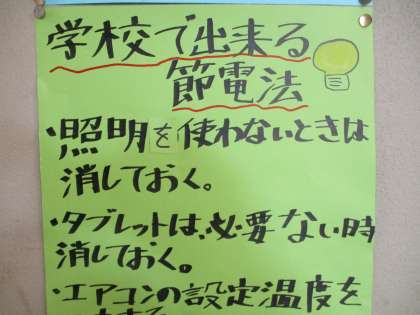 学校で出来る
節電法
・照明を使わないときは
消しておく。
・タブレットは、必要ない時
消しておく。
・エアコンの設定温度を